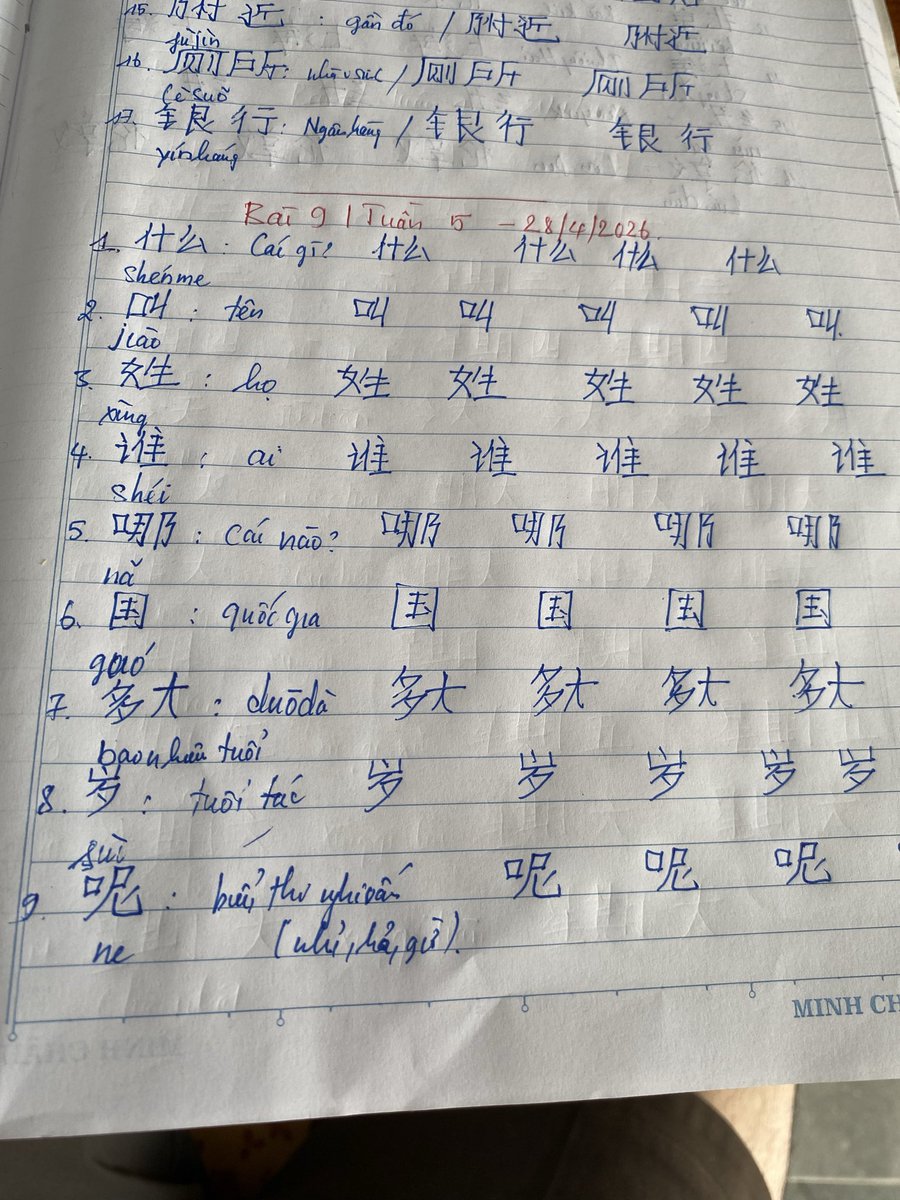 15. 附近 : gần đó / 附近 附近
fùjìn
16. 厕所 : nhà v sinh / 厕所 厕所
cè suǒ
17. 银行 : Ngân hàng / 银行 银行
yínháng
Bài 9 | Tuần 5 - 28/4/2026.
1. 什么 : Cái gì? 什么 什么 什么 什么
shénme
2. 叫 : tên 叫 叫 叫 叫 叫.
jiào
3. 姓 : họ 姓 姓 姓 姓 姓
xìng
4. 谁 : ai 谁 谁 谁 谁 谁
shéi
5. 哪 : Cái nào? 哪 哪 哪 哪
nǎ
6. 国 : quốc gia 国 国 国 国
guó
7. 多大 : duōdà 多大 多大 多大 多大
bao nhiêu tuổi
8. 岁 : tuổi tác 岁 岁 岁 岁 岁
suì
9. 呢 : biểu thị nghi vấn 呢 呢 呢
ne (nhỉ, hả, gì).
MINH CH